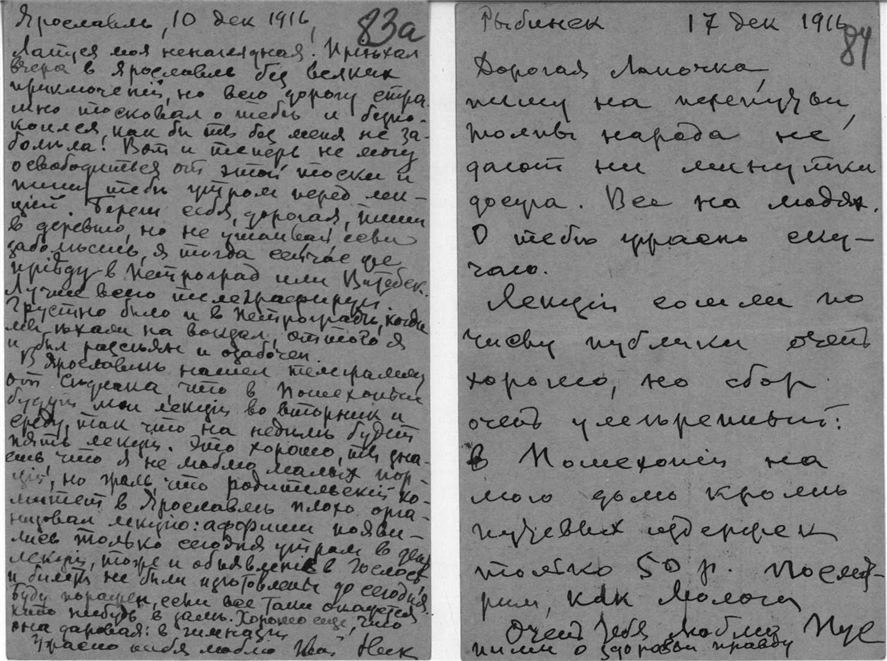 Ярославль, 10 дек 1916
83а
Лапуся моя ненаглядная! Приѣхал
вчера в Ярославль без всяких
приключеній, но всю дорогу стра-
шно тосковал о тебѣ и безпо-
коился, как бы ты без меня не за-
болѣла! Вот и теперь не могу
освободиться от этой тоски и
пишу тебѣ утром перед лек-
ціей. Береги себя, дорогая, пиши
в деревню, но не утаивай если
заболѣешь, я тогда сейчас же
пріѣду в Петроград или Витебск.
Лучше всего телеграфируй.
Грустно было и в Петроградѣ, когда
мы ѣхали на вокзал, оттого я
и был разсѣян и озабочен.
В Ярославлѣ нашел телеграмму
от, что в Пошехоньи
будут мои лекціи во вторник и
среду, так что на недѣлѣ будет
пять лекцій. Это хорошо, ты зна-
ешь что я не люблю малых пор-
цій, но жаль, что родительскій ко-
митет в Ярославлѣ плохо орга-
низовал лекцію: афиши появи-
лись только сегодня утром в день
лекціи, тоже и объявленія в Голосѣ
и билеты не были изготовлены до сегодня.
Буду поражен, если все таки окажется
кто нибудь в залѣ. Хорошо еще, что
она даровая: в гимназіи
Ужасно тебя люблю Твой Нек
Рыбинск 17 дек 1916
84
Дорогая Лапочка,
пишу на перепутьи,
толпы народа не
дают ни минутки
досуга. Все на людях.
О тебѣ ужасно ску-
чаю.
Лекціи сошли по
числу публики очень
хорошо, но сбор
очень умѣренный:
в Пошехоньи на
мою долю кромѣ
путевых издержек
только 50 р. Посмот-
рим, как Молога
Очень тебя люблю
пиши о здоровьи правду